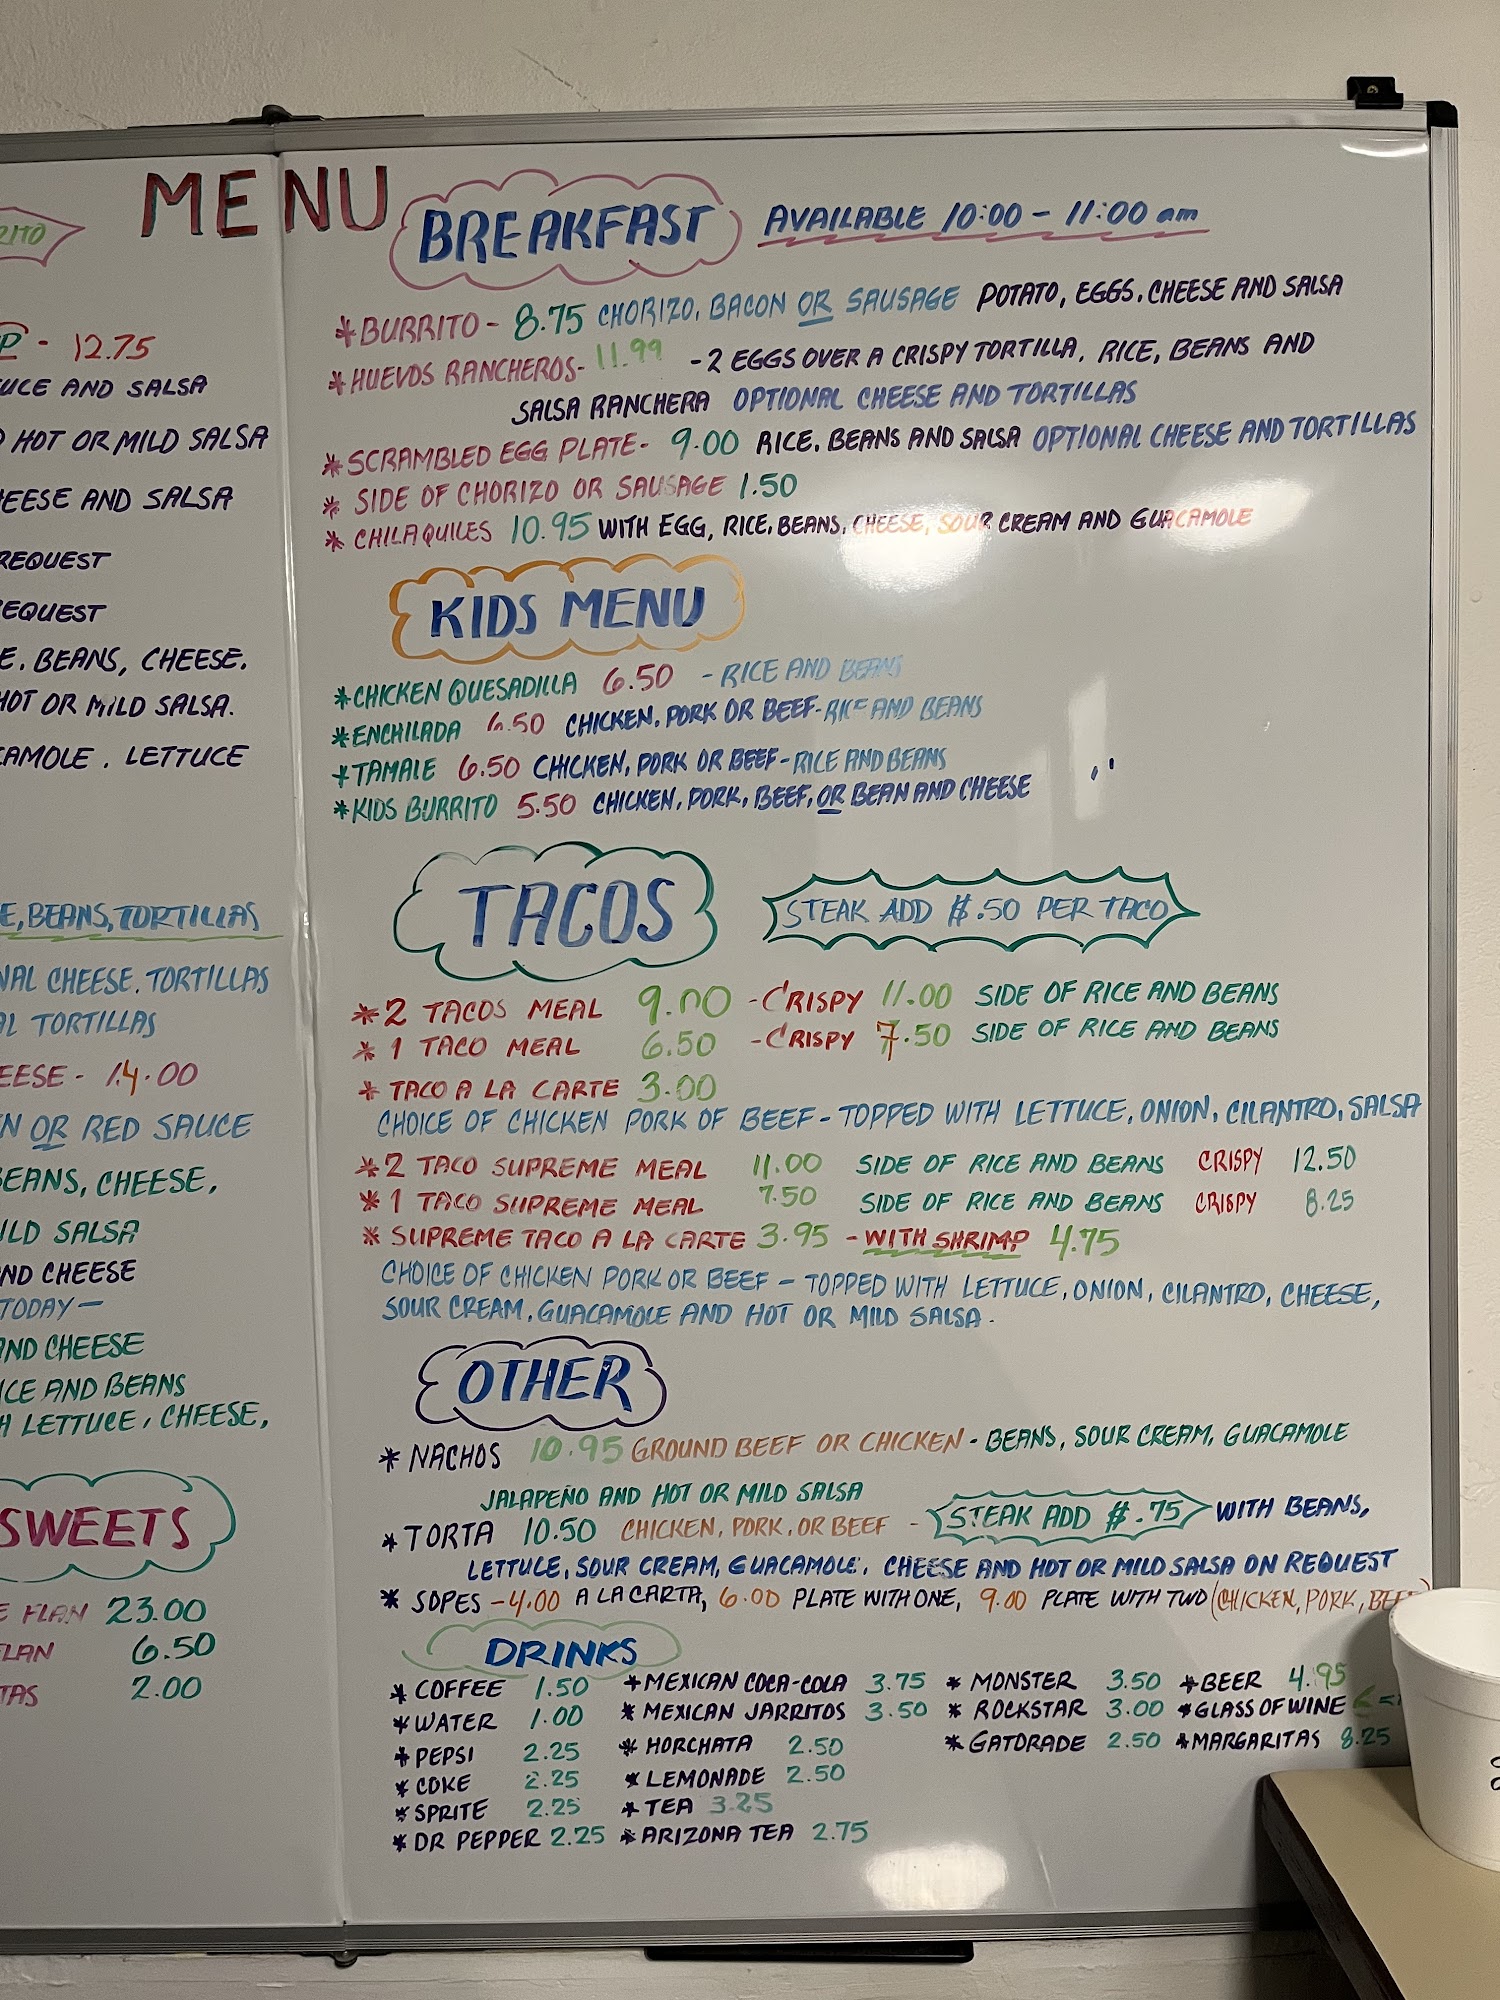 MENU
RITO
- 12.75
UCE AND SALSA
HOT OR MILD SALSA
HEESE AND SALSA
REQUEST
REQUEST
E. BEANS, CHEESE.
HOT OR MILD SALSA.
CAMOLE . LETTUCE
E, BEANS, TORTILLAS
NAL CHEESE. TORTILLAS
AL TORTILLAS
EESE - 14.00
N OR RED SAUCE
BEANS, CHEESE,
ILD SALSA
ND CHEESE
TODAY -
AND CHEESE
ICE AND BEANS
H LETTUCE, CHEESE,
SWEETS
E FLAN 23.00
FLAN 6.50
TAS 2.00
BREAKFAST AVAILABLE 10:00 - 11:00 am
*BURRITO - 8.75 CHORIZO, BACON OR SAUSAGE POTATO, EGGS, CHEESE AND SALSA
*HUEVOS RANCHEROS- 11.99 -2 EGGS OVER A CRISPY TORTILLA, RICE, BEANS AND
SALSA RANCHERA OPTIONAL CHEESE AND TORTILLAS
*SCRAMBLED EGG PLATE- 9.00 RICE. BEANS AND SALSA OPTIONAL CHEESE AND TORTILLAS
* SIDE OF CHORIZO OR SAUSAGE 1.50
* CHILAQUILES 10.95 WITH EGG, RICE, BEANS, CHEESE, SOUR CREAM AND GUACAMOLE
KIDS MENU
*CHICKEN QUESADILLA 6.50 - RICE AND BEANS
*ENCHILADA 6.50 CHICKEN, PORK OR BEEF-RICE AND BEANS
*TAMALE 6.50 CHICKEN, PORK OR BEEF-RICE AND BEANS
*KIDS BURRITO 5.50 CHICKEN, PORK, BEEF, OR BEAN AND CHEESE
TACOS STEAK ADD $.50 PER TACO
*2 TACOS MEAL 9.00 - CRISPY 11.00 SIDE OF RICE AND BEANS
* 1 TACO MEAL 6.50 - CRISPY 7.50 SIDE OF RICE AND BEANS
* TACO A LA CARTE 3.00
CHOICE OF CHICKEN PORK OF BEEF - TOPPED WITH LETTUCE, ONION, CILANTRO, SALSA
*2 TACO SUPREME MEAL 11.00 SIDE OF RICE AND BEANS CRISPY 12.50
*1 TACO SUPREME MEAL 7.50 SIDE OF RICE AND BEANS CRISPY 8.25
* SUPREME TACO A LA CARTE 3.95 - WITH SHRIMP 4.75
CHOICE OF CHICKEN PORK OR BEEF - TOPPED WITH LETTUCE, ONION, CILANTRO, CHEESE,
SOUR CREAM, GUACAMOLE AND HOT OR MILD SALSA.
OTHER
* NACHOS 10.95 GROUND BEEF OR CHICKEN - BEANS, SOUR CREAM, GUACAMOLE
JALAPEÑO AND HOT OR MILD SALSA
* TORTA 10.50 CHICKEN, PORK, OR BEEF - STEAK ADD $.75 WITH BEANS,
LETTUCE, SOUR CREAM, GUACAMOLE, CHEESE AND HOT OR MILD SALSA ON REQUEST
* SOPES - 4.00 A LA CARTA, 6.00 PLATE WITH ONE, 9.00 PLATE WITH TWO (CHICKEN, PORK, BEEF
DRINKS
* COFFEE 1.50 *MEXICAN COCA-COLA 3.75 * MONSTER 3.50 *BEER 4.95
*WATER 1.00 * MEXICAN JARRITOS 3.50 * ROCKSTAR 3.00 *GLASS OF WINE
*PEPSI 2.25 * HORCHATA 2.50 *GATORADE 2.50 *MARGARITAS 8.25
*COKE 2.25 *LEMONADE 2.50
*SPRITE 2.25 *TEA 3.25
*DR PEPPER 2.25 *ARIZONA TEA 2.75